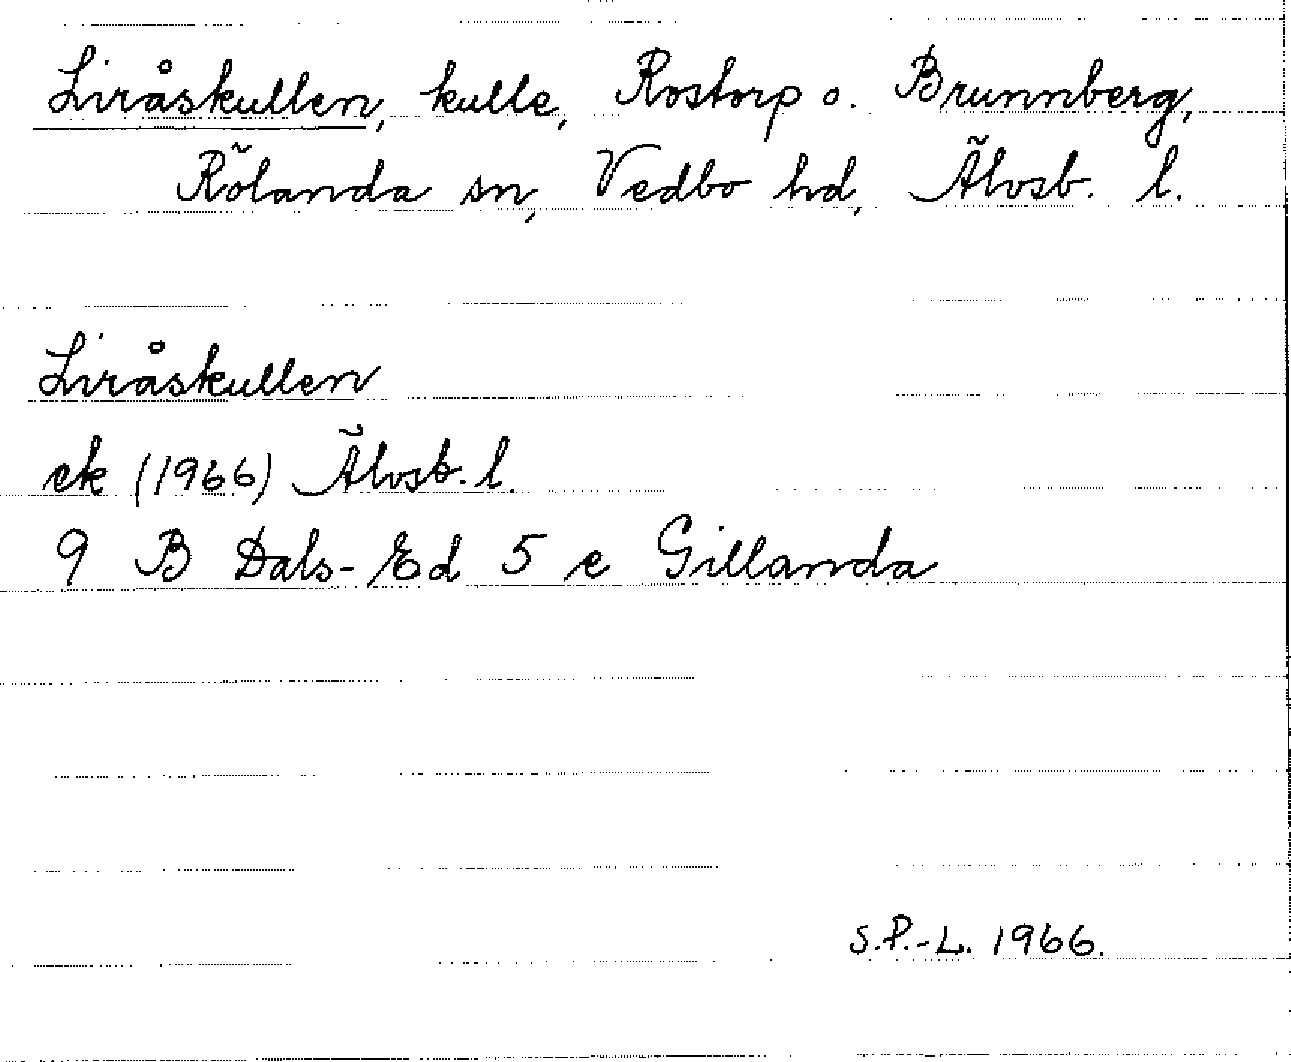 Liråskullen, kulle, Rostorp o. Brunnberg,
Rölanda sn, Vedbo hd, Älvsb. l.
Liråskullen
ek (1966) Älvsb. l.
9 B Dals-Ed 5 e Gillanda
S.P.-L. 1966.